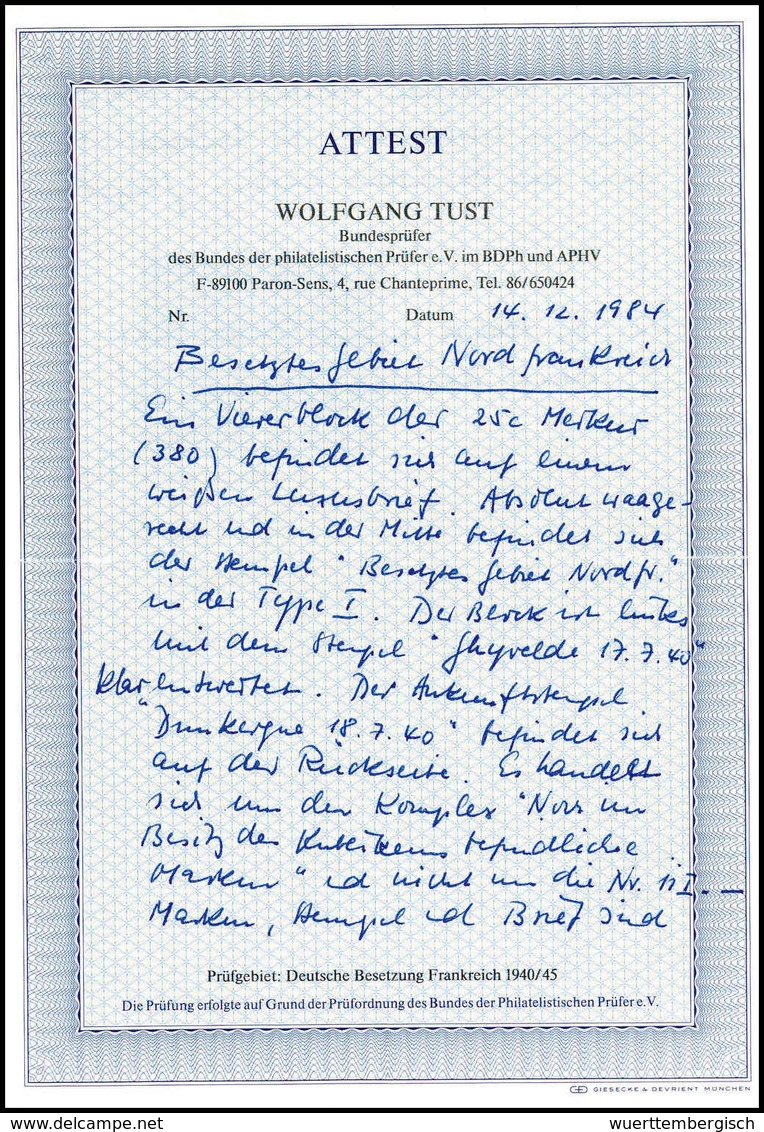 ATTEST
WOLFGANG TUST
Bundesprüfer
des Bundes der philatelistischen Prüfer e.V. im BDPh und APHV
F-89100 Paron-Sens, 4, rue Chanteprime, Tel. 86/650424
Nr. Datum 14. 12. 1984
Besetztes Gebiet Nordfrankreich
Ein Viererblock der 25c Merkur
(380) befindet sich auf einem
weißen Luxusbrief. Absolut waage-
recht und in der Mitte befindet sich
der Stempel "Besetztes Gebiet Nordfr."
in der Type I. Der Block ist links
mit dem Stempel "Ghyvelde 17.7.40"
klar entwertet. Der Ankunftsstempel
"Dunkerque 18.7.40" befindet sich
auf der Rückseite. Es handelt
sich um den Komplex "Noch im
Besitz des Publikums befindliche
Marken" und nicht um die Nr. 11 I. —
Marken, Stempel und Brief sind
Prüfgebiet: Deutsche Besetzung Frankreich 1940/45
Die Prüfung erfolgte auf Grund der Prüfordnung des Bundes der Philatelistischen Prüfer e.V.
GIESECKE & DEVRIENT MÜNCHEN
www.delcampe.net wuerttembergisch